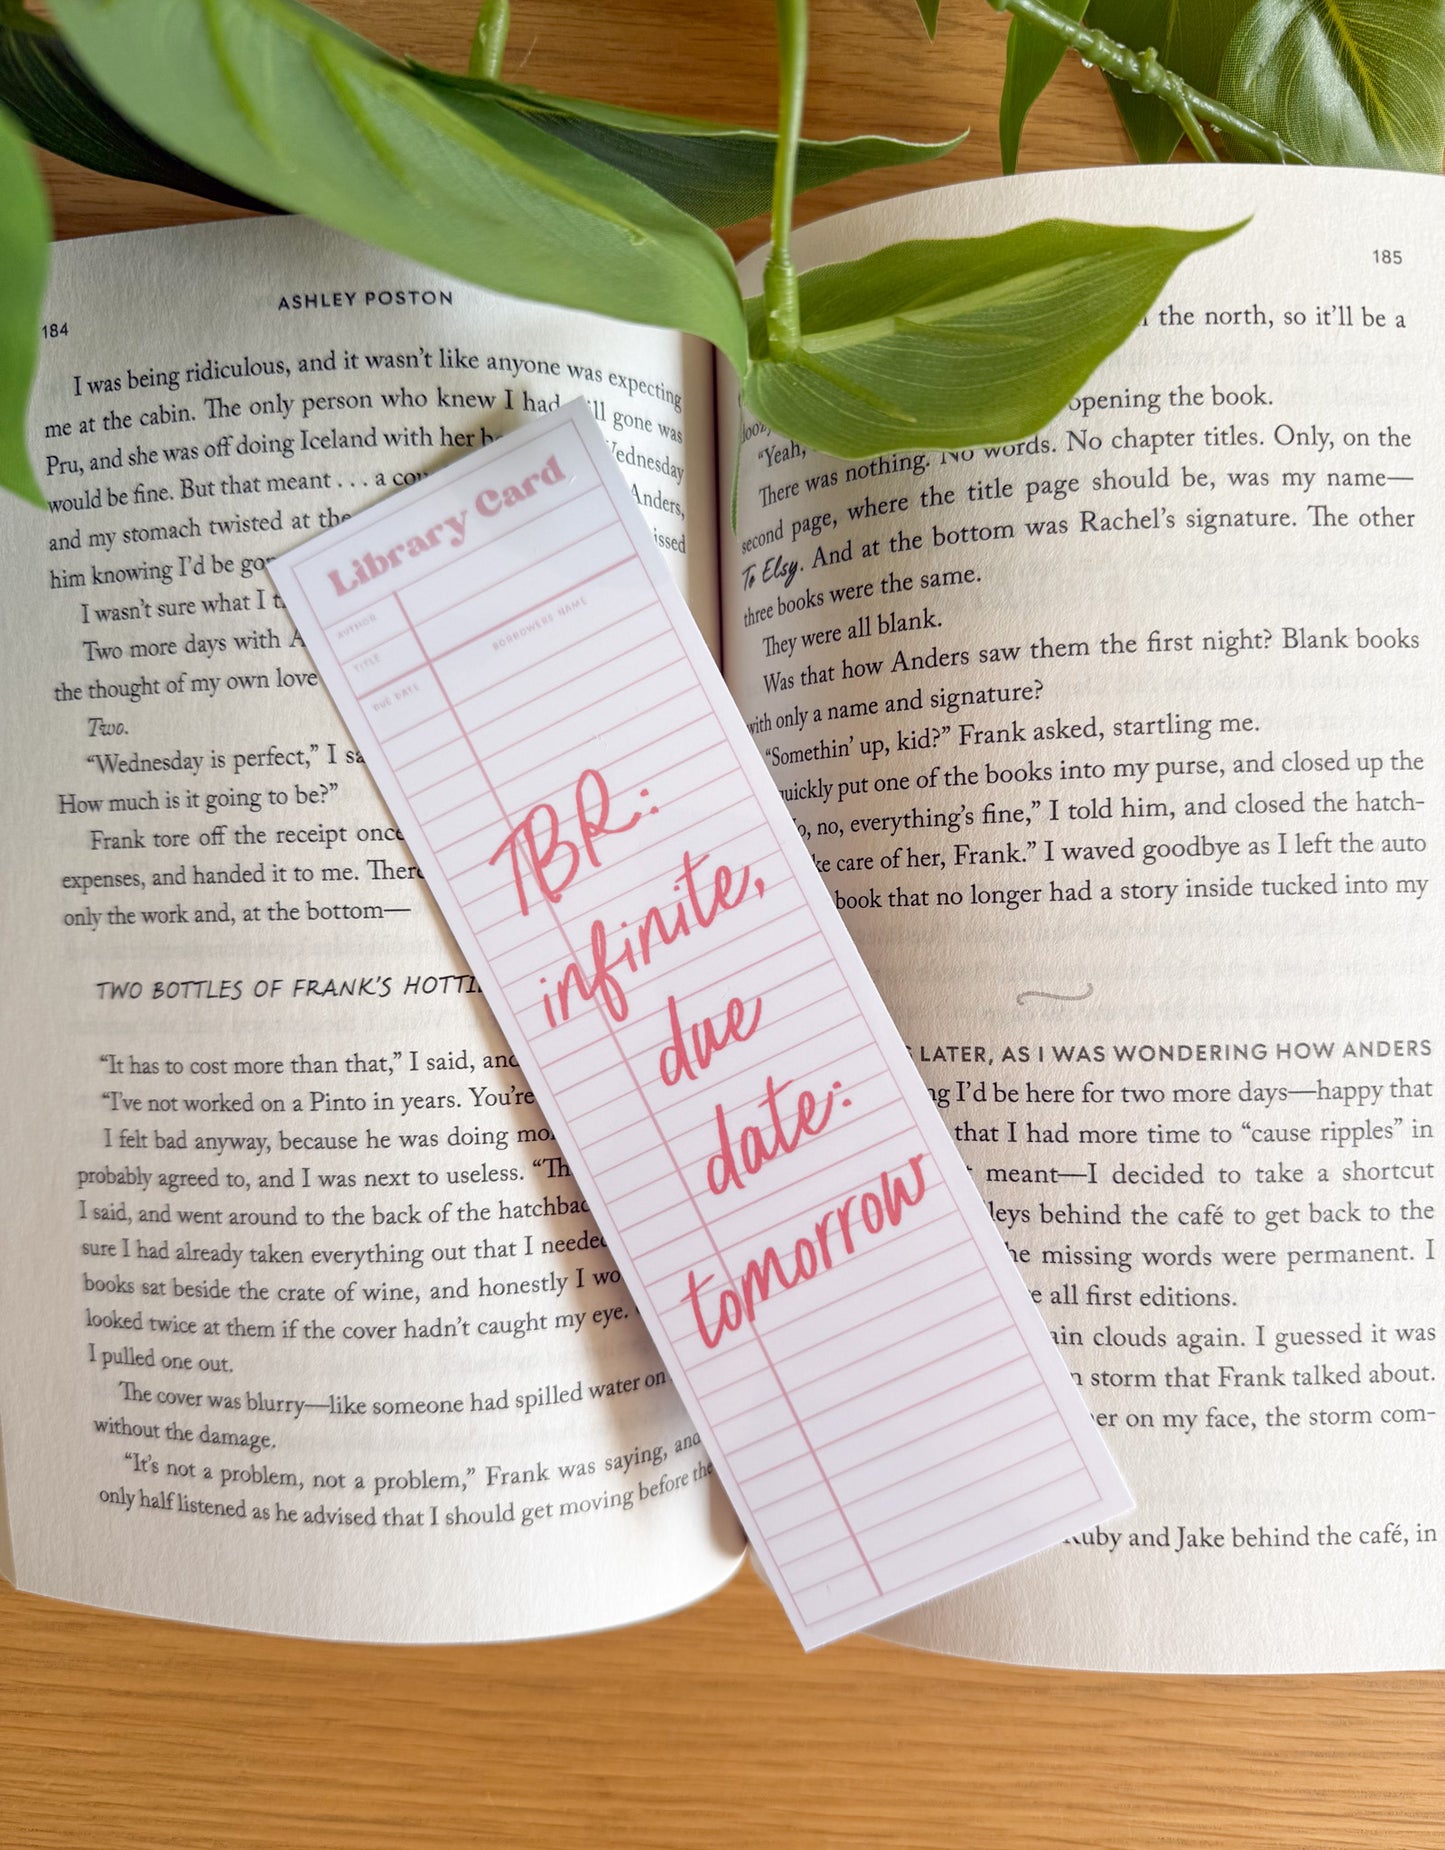 184
ASHLEY POSTON
I was being ridiculous, and it wasn't like anyone was expecting
me at the cabin. The only person who knew I had gone was
Pru, and she was off doing Iceland with her Wednesday
would be fine. But that meant . . . a Anders,
and my stomach twisted at the
him knowing I'd be
I wasn't sure what I
Two more days with
the thought of my own love
Two.
“Wednesday is perfect,” I
How much is it going to be?”
Frank tore off the receipt once
expenses, and handed it to me.
only the work and, at the bottom—
TWO BOTTLES OF FRANK'S
“It has to cost more than that,” I said,
“I've not worked on a Pinto in years. You're
I felt bad anyway, because he was doing
probably agreed to, and I was next to useless.
I said, and went around to the back of the
sure I had already taken everything out that I
books sat beside the crate of wine, and honestly I
looked twice at them if the cover hadn't caught my eye.
I pulled one out.
The cover was blurry—like someone had spilled water on
without the damage.
“It's not a problem, not a problem,” Frank was saying, and
only half listened as he advised that I should get moving before the
Library Card
AUTHOR
TITLE
DUE DATE
BORROWERS NAME
TBR:
infinite,
due
date:
tomorrow
185
the north, so it'll be a
opening the book.
“Yeah,
There was nothing. No words. No chapter titles. Only, on the
second page, where the title page should be, was my name—
To Elsy. And at the bottom was Rachel's signature. The other
three books were the same.
They were all blank.
Was that how Anders saw them the first night? Blank books
with only a name and signature?
“Somethin' up, kid?” Frank asked, startling me.
quickly put one of the books into my purse, and closed up the
no, everything's fine,” I told him, and closed the hatch-
care of her, Frank.” I waved goodbye as I left the auto
book that no longer had a story inside tucked into my
LATER, AS I WAS WONDERING HOW ANDERS
I'd be here for two more days—happy that
that I had more time to “cause ripples” in
meant—I decided to take a shortcut
behind the café to get back to the
missing words were permanent. I
all first editions.
clouds again. I guessed it was
storm that Frank talked about.
on my face, the storm com-
Ruby and Jake behind the café, in